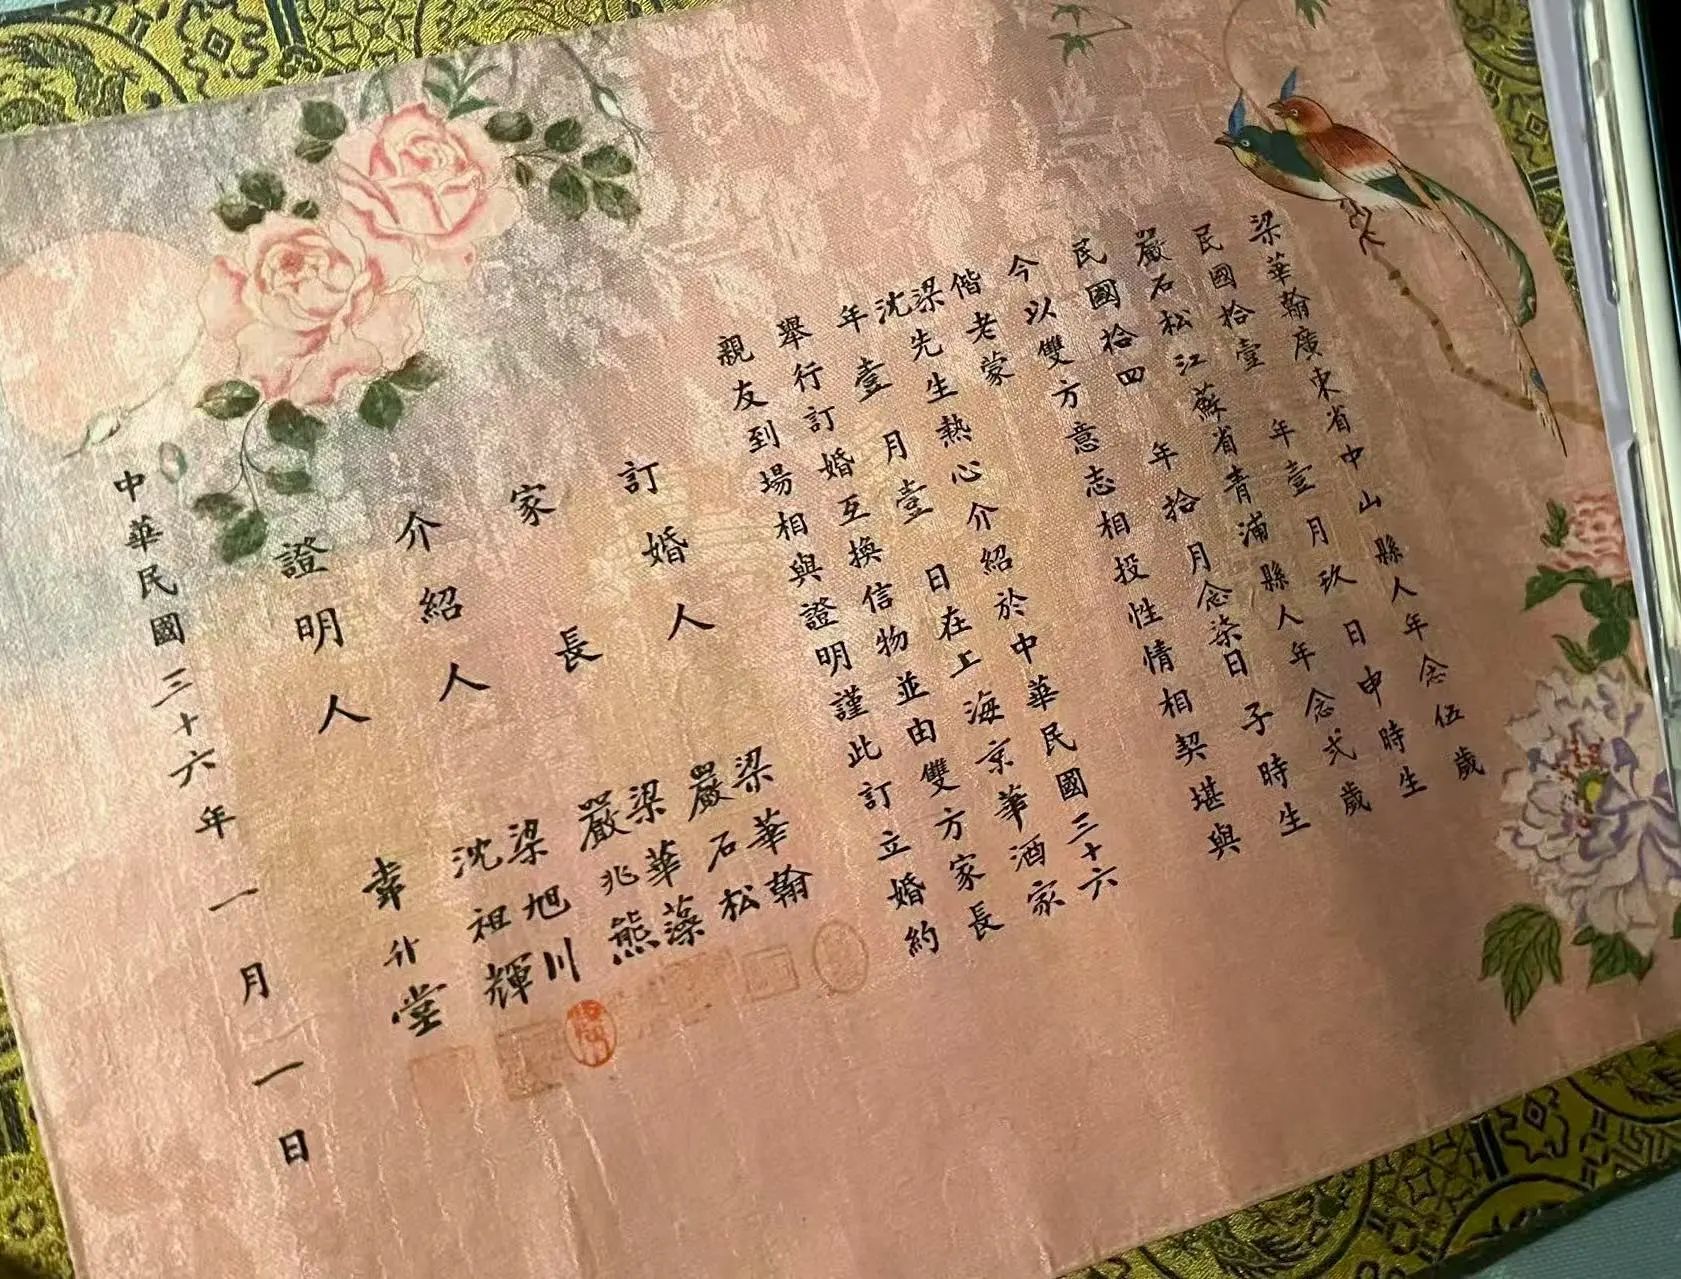 梁華翰廣東省中山縣人年念伍歲
民國拾壹年壹月玖日申時生
嚴石松江蘇省青浦縣人年念弍歲
民國拾四年拾月念柒日子時生
今以雙方意志相投性情相契堪與
偕老蒙
梁沈先生熱心介紹於中華民國三十六
年壹月壹日在上海京華酒家
舉行訂婚互換信物並由雙方家長
親友到場相與證明謹此訂立婚約
訂婚人 梁華翰
嚴石松
家長 梁華藻
嚴兆熊
介紹人 梁旭川
沈祖輝
證明人 韋升堂
中華民國三十六年一月一日